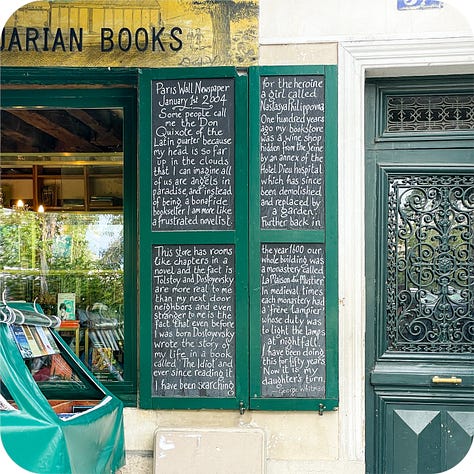 UARIAN BOOKS
Paris Wall Newspaper
January 1st 2004
Some people call
me the Don
Quixote of the
Latin Quarter because
my head is so far
up in the clouds
that I can imagine all
of us are angels in
paradise and instead
of being a bonafide
bookseller I am more like
a frustrated novelist
This store has rooms
like chapters in a
novel and the fact is
Tolstoy and Dostoyevsky
are more real to me
than my next door
neighbors and even
stranger to me is the
fact that even before
I was born Dostoyevsky
wrote the story of
my life in a book
called 'The Idiot' and
ever since reading it
I have been searching
for the heroine
a girl called
Nastasya Philippovna
One hundred years
ago my bookstore
was a wine shop
hidden from the Seine
by an annex of the
Hotel Dieu hospital
which has since
been demolished
and replaced by
a garden.
Further back in
the year 1600 our
whole building was
a monastery called
La Maison du Mustier
In medieval times
each monastery had
a frère lampier
whose duty was
to light the lamps
at nightfall
I have been doing
this for fifty years
Now it is my
daughter's turn.
George Whitman